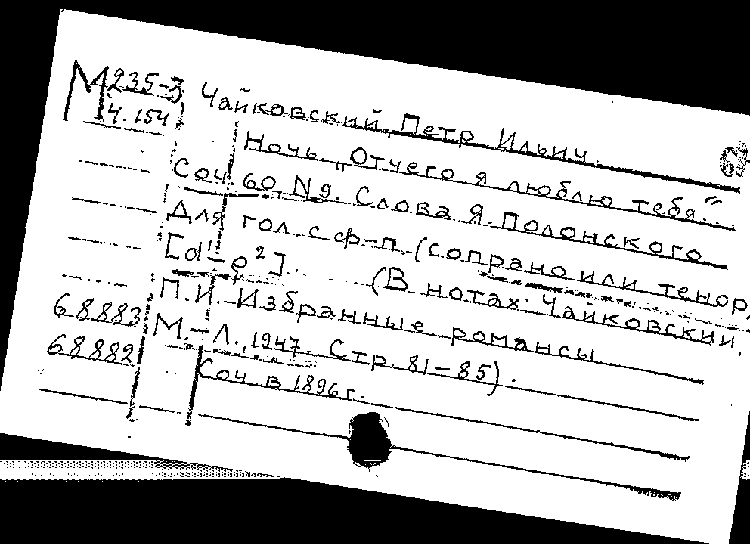 М 235-3
4.154
Чайковский, Петр Ильич.
Ночь. „Отчего я люблю тебя..."
Соч. 60, № 9. Слова Я. Полонского
Для гол. с ф-п. (сопрано или тенор,
[d¹ - g²]. (В нотах: Чайковский,
П.И. Избранные романсы
М.-Л., 1947. Стр. 81-85).
Соч. в 1896 г.
68883
68882